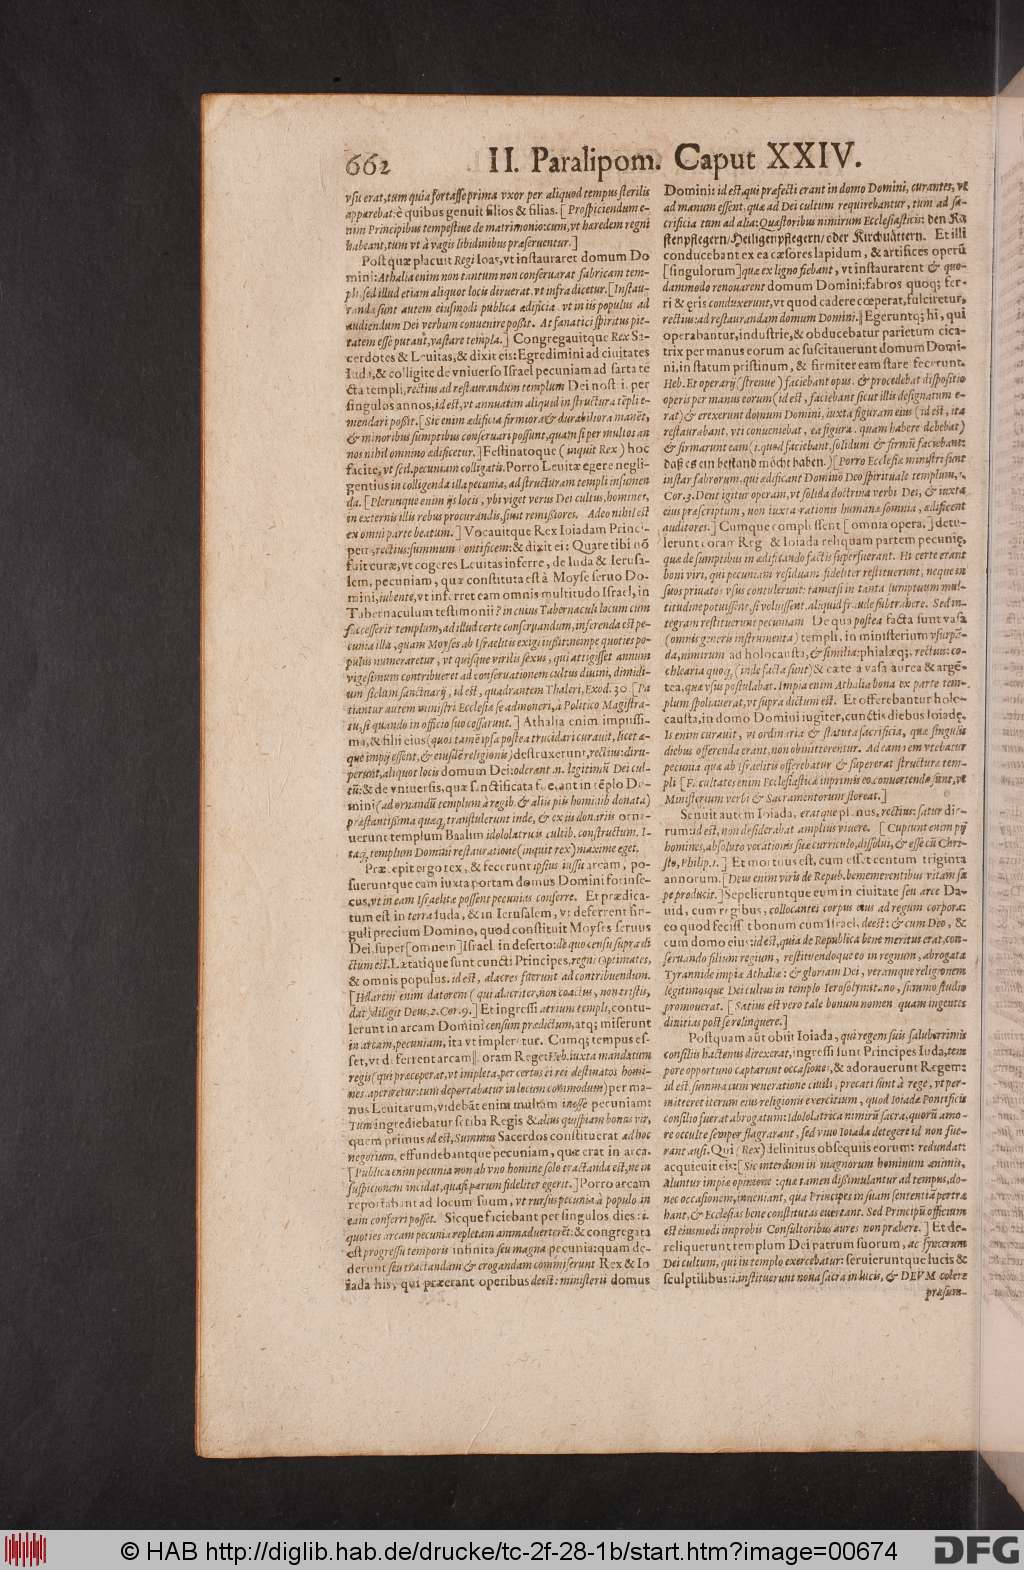 662 II. Paralipom. Caput XXIV.
vsu erat, tum quia fortasse prima vxor per aliquod tempus sterilis
apparebat: è quibus genuit filios & filias. [Prospiciendum e-
nim Principibus tempestiue de matrimonio: cum, vt hæredem regni
habeant, tum vt à vagis libidinibus præseruentur.]
Post quæ placuit Regi Ioas, vt instauraret domum Do
mini: Athalia enim non tantum non conseruarat fabricam tem-
pli, sed illud etiam aliquot locis diruerat, vt infra dicetur. [Instau-
randa sunt autem eiusmodi publica ædificia, vt in iis populus ad
audiendum Dei verbum conuenire possit. At fanatici spiritus pie-
tatem esse putant, vastare templa.] Congregauitque Rex Sa-
cerdotes & Leuitas, & dixit eis: Egredimini ad ciuitates
Iuda, & colligite de vniuerso Israel pecuniam ad sarta te
cta templi, rectius ad restaurandum templum Dei nostri, per
singulos annos, id est, vt annuatim aliquid in structura tēpli e-
mendari possit. [Sic enim ædificia firmiora & durabiliora manēt,
& minoribus sumptibus conseruari possunt, quàm si per multos an
nos nihil omnino ædificetur.] Festinatoque (inquit Rex) hoc
facite, vt scil. pecuniam colligatis. Porro Leuitæ egere negli-
gentius in colligenda illa pecunia, ad structuram templi insumen
da. [Plerunque enim ijs locis, vbi viget verus Dei cultus, homines,
in externis illis rebus procurandis, sunt remissiores. Adeo nihil est
ex omni parte beatum.] Vocauitque Rex Ioiadam Princi-
pem, rectius: summum Pontificem: & dixit ei: Quare tibi nō
fuit curæ, vt cogeres Leuitas inferre, de Iuda & Ierusa-
lem, pecuniam, quæ constituta est à Moyse seruo Do-
mini, iubente, vt inferret eam omnis multitudo Israel, in
Tabernaculum testimonii? in cuius Tabernaculi locum cum
successerit templum, ad illud certe conseruandum, inferenda est pe-
cunia illa, quam Moyses ab Israelitis exigi iussit: nempe quoties po-
pulus numeraretur, vt quisque virilis sexus, qui attigisset annum
vigesimum contribueret ad conseruationem cultus diuini, dimidi-
um siclum sanctuarij, id est, quadrantem Thaleri, Exod. 30 [Pa
tiantur autem ministri Ecclesiæ se admoneri, à Politico Magistra-
tu, si quando in officio suo cessarunt.] Athalia enim impiissi-
ma, & filii eius (quos tamē ipsa postea trucidari curauit, licet æ-
que impij essent, & eiusdē religionis) destruxerunt, rectius: diru-
perunt, aliquot locis domum Dei: oderant .n. legitimū Dei cul-
tū: & de vniuersis, quæ sanctificata fuerant in tēplo Do-
mini (ad ornandū templum à regib. & aliis piis hominib donata)
præstantissima quæq, transtulerunt inde, & ex iis donariis orna-
uerunt templum Baalim idololatricis cultib. constructum. I-
taq, templum Domini restauratione (inquit rex) maxime eget.
Præcepit ergo rex, & fecerunt ipsius iussu arcam, po-
sueruntque eam iuxta portam domus Domini forinse-
cus, vt in eam Israelitæ possent pecunias conferre. Et prædica-
tum est in terra Iuda, & in Ierusalem, vt deferrent sin-
guli precium Domino, quod constituit Moyses seruus
Dei, super [omnem] Israel in deserto: de quo censu supra di
ctum est. Lætatique sunt cuncti Principes, regni Optimates,
& omnis populus. id est, alacres fuerunt ad contribuendum.
[Hilarem enim datorem (qui alacriter, non coactus, non tristis,
dat) diligit Deus, 2. Cor. 9.] Et ingressi atrium templi, contu-
lerunt in arcam Domini censum prædictum, atq; miserunt
in arcam, pecuniam, ita vt impleretur. Cumq; tempus es-
set, vt deferrent arcam coram Rege: Heb. iuxta mandatum
regis (qui præceperat, vt impleta, per certos ei rei destinatos homi-
nes aperiretur: tum deportabatur in locum commodum) per ma-
nus Leuitarum, videbāt enim multam inesse pecuniam:
Tum ingrediebatur scriba Regis & alius quispiam bonus vir,
quem primus id est, Summus Sacerdos constituerat ad hoc
negotium, effundebantque pecuniam, quæ erat in arca.
[Publica enim pecunia non ab vno homine solo tractanda est, ne in
suspicionem incidat, quasi parum fideliter egerit.] Porro arcam
reportabant ad locum suum, vt rursus pecunia à populo in
eam conferri posset. Sicque faciebant per singulos dies: i.
quoties arcam pecunia repletam animaduerterēt: & congregata
est progressu temporis infinita seu magna pecunia: quam de-
derunt seu tractandam & erogandam commiserunt Rex & Io
iada his, qui præerant operibus deest: ministerii domus
Domini: id est, qui præfecti erant in domo Domini, curantes, vt
ad manum essent, quæ ad Dei cultum requirebantur, tum ad sa-
crificia tum ad alia: Quæstoribus nimirum Ecclesiasticis: den Ka
stenpflegern/Heiligenpflegern/oder Kirchuättern. Et illi
conducebant ex ea cæsores lapidum, & artifices operū
[singulorum] quæ ex ligno fiebant, vt instaurarent & quo-
dammodo renouarent domum Domini: fabros quoq; fer-
ri & æris conduxerunt, vt quod cadere cœperat, fulciretur,
rectius: ad restaurandam domum Domini.] Egeruntq; hi, qui
operabantur, industrie, & obducebatur parietum cica-
trix per manus eorum ac suscitauerunt domum Domi-
ni, in statum pristinum, & firmiter eam stare fecerunt.
Heb. Et operarij (strenue) faciebant opus. & procedebat dispositio
operis per manus eorum (id est, faciebant sicut illis designatum e-
rat) & erexerunt domum Domini, iuxta figuram eius (id est, ita
restaurabant, vti conueniebat, ea figura, quam habere debebat)
& firmarunt eam (i. quod faciebant, solidum & firmū faciebant:
daß es ein bestand möcht haben.) [Porro Ecclesiæ ministri sunt
instar fabrorum, qui ædificant Domino Deo spirituale templum, 1.
Cor. 3. Dent igitur operam, vt solida doctrina verbi Dei, & iuxta
eius præscriptum, non iuxta rationis humanæ somnia, ædificent
auditores.] Cumque complessent [omnia opera,] detu-
lerunt coram Rege & Ioiada reliquam partem pecuniæ,
quæ de sumptibus in ædificando factis superfuerant. Hi certe erant
boni viri, qui pecuniam residuam fideliter restituerunt, neque in
suos priuatos vsus contulerunt: tametsi in tanta sumptuum mul-
titudine potuissent, si voluissent, aliquid fraude subtrahere. Sed in-
tegram restituerunt pecuniam De qua postea facta sunt vasa
(omnis generis instrumenta) templi, in ministerium vsurpā-
da, nimirum ad holocausta, & similia: phialæq;, rectius: co-
chlearia quoq, (inde facta sunt) & cætera vasa aurea & argē-
tea, quæ vsus postulabat. Impia enim Athalia bona ex parte tem-
plum spoliauerat, vt supra dictum est. Et offerebantur holo-
causta, in domo Domini iugiter, cunctis diebus Ioiadę.
Is enim curauit, vt ordinaria & statuta sacrificia, quæ singulis
diebus offerenda erant, non obmitterentur. Ad eam rem vtebatur
pecunia quæ ab Israelitis offerebatur & supererat structuræ tem-
pli [Facultates enim Ecclesiasticæ inprimis eo conuertendæ sunt, vt
Ministerium verbi & Sacramentorum floreat.]
Senuit autem Ioiada, eratque plenus, rectius: satur die-
rum: id est, non desiderabat amplius viuere. [Cupiunt enim pij
homines, absoluto vocationis suæ curriculo, dissolui, & esse cū Chri-
sto, Philip. 1.] Et mortuus est, cum esset centum triginta
annorum. [Deus enim viris de Repub. bene merentibus vitam sæ
pe producit.] Sepelieruntque eum in ciuitate seu arce Da-
uid, cum regibus, collocantes corpus eius ad regum corpora:
eo quod fecisset bonum cum Israel, deest: & cum Deo, &
cum domo eius: id est, quia de Republica bene meritus erat, con-
seruando filium regium, restituendoque eo in regnum, abrogata
Tyrannide impiæ Athaliæ: & gloriam Dei, veramque religionem
legitimosque Dei cultus in templo Ierosolymitano, summo studio
promouerat. [Satius est vero tale bonum nomen quam ingentes
diuitias post se relinquere.]
Postquam autem obiit Ioiada, qui regem suis saluberrimis
consiliis hactenus direxerat, ingressi sunt Principes Iuda, tem
pore opportuno captarunt occasionem, & adorauerunt Regem:
id est summa cum veneratione ciuili, precati sunt à rege, vt per-
mitteret iterum eius religionis exercitium, quod Ioiadæ Pontificis
consilio fuerat abrogatum: Idololatrica nimirū sacra, quorū amo-
re occulte semper flagrarant, sed viuo Ioiada detegere id non fue-
rant ausi. Qui (Rex) delinitus obsequiis eorum: redundat:
acquieuit eis: [Sic interdum in magnorum hominum animis,
aluntur impiæ opiniones: quæ tamen dissimulantur ad tempus, do-
nec occasionem, inueniant, qua Principes in suam sententiā pertra
hant, & Ecclesias bene constitutas euertant. Sed Principū officium
est eiusmodi improbis Consultoribus aures non præbere.] Et de-
reliquerunt templum Dei patrum suorum, ac syncerum
Dei cultum, qui in templo exercebatur: seruieruntque lucis &
sculptilibus: .i. instituerunt nona sacra in lucis, & DEVM colere
præsum-
© HAB http://diglib.hab.de/drucke/tc-2f-28-1b/start.htm?image=00674
DFG